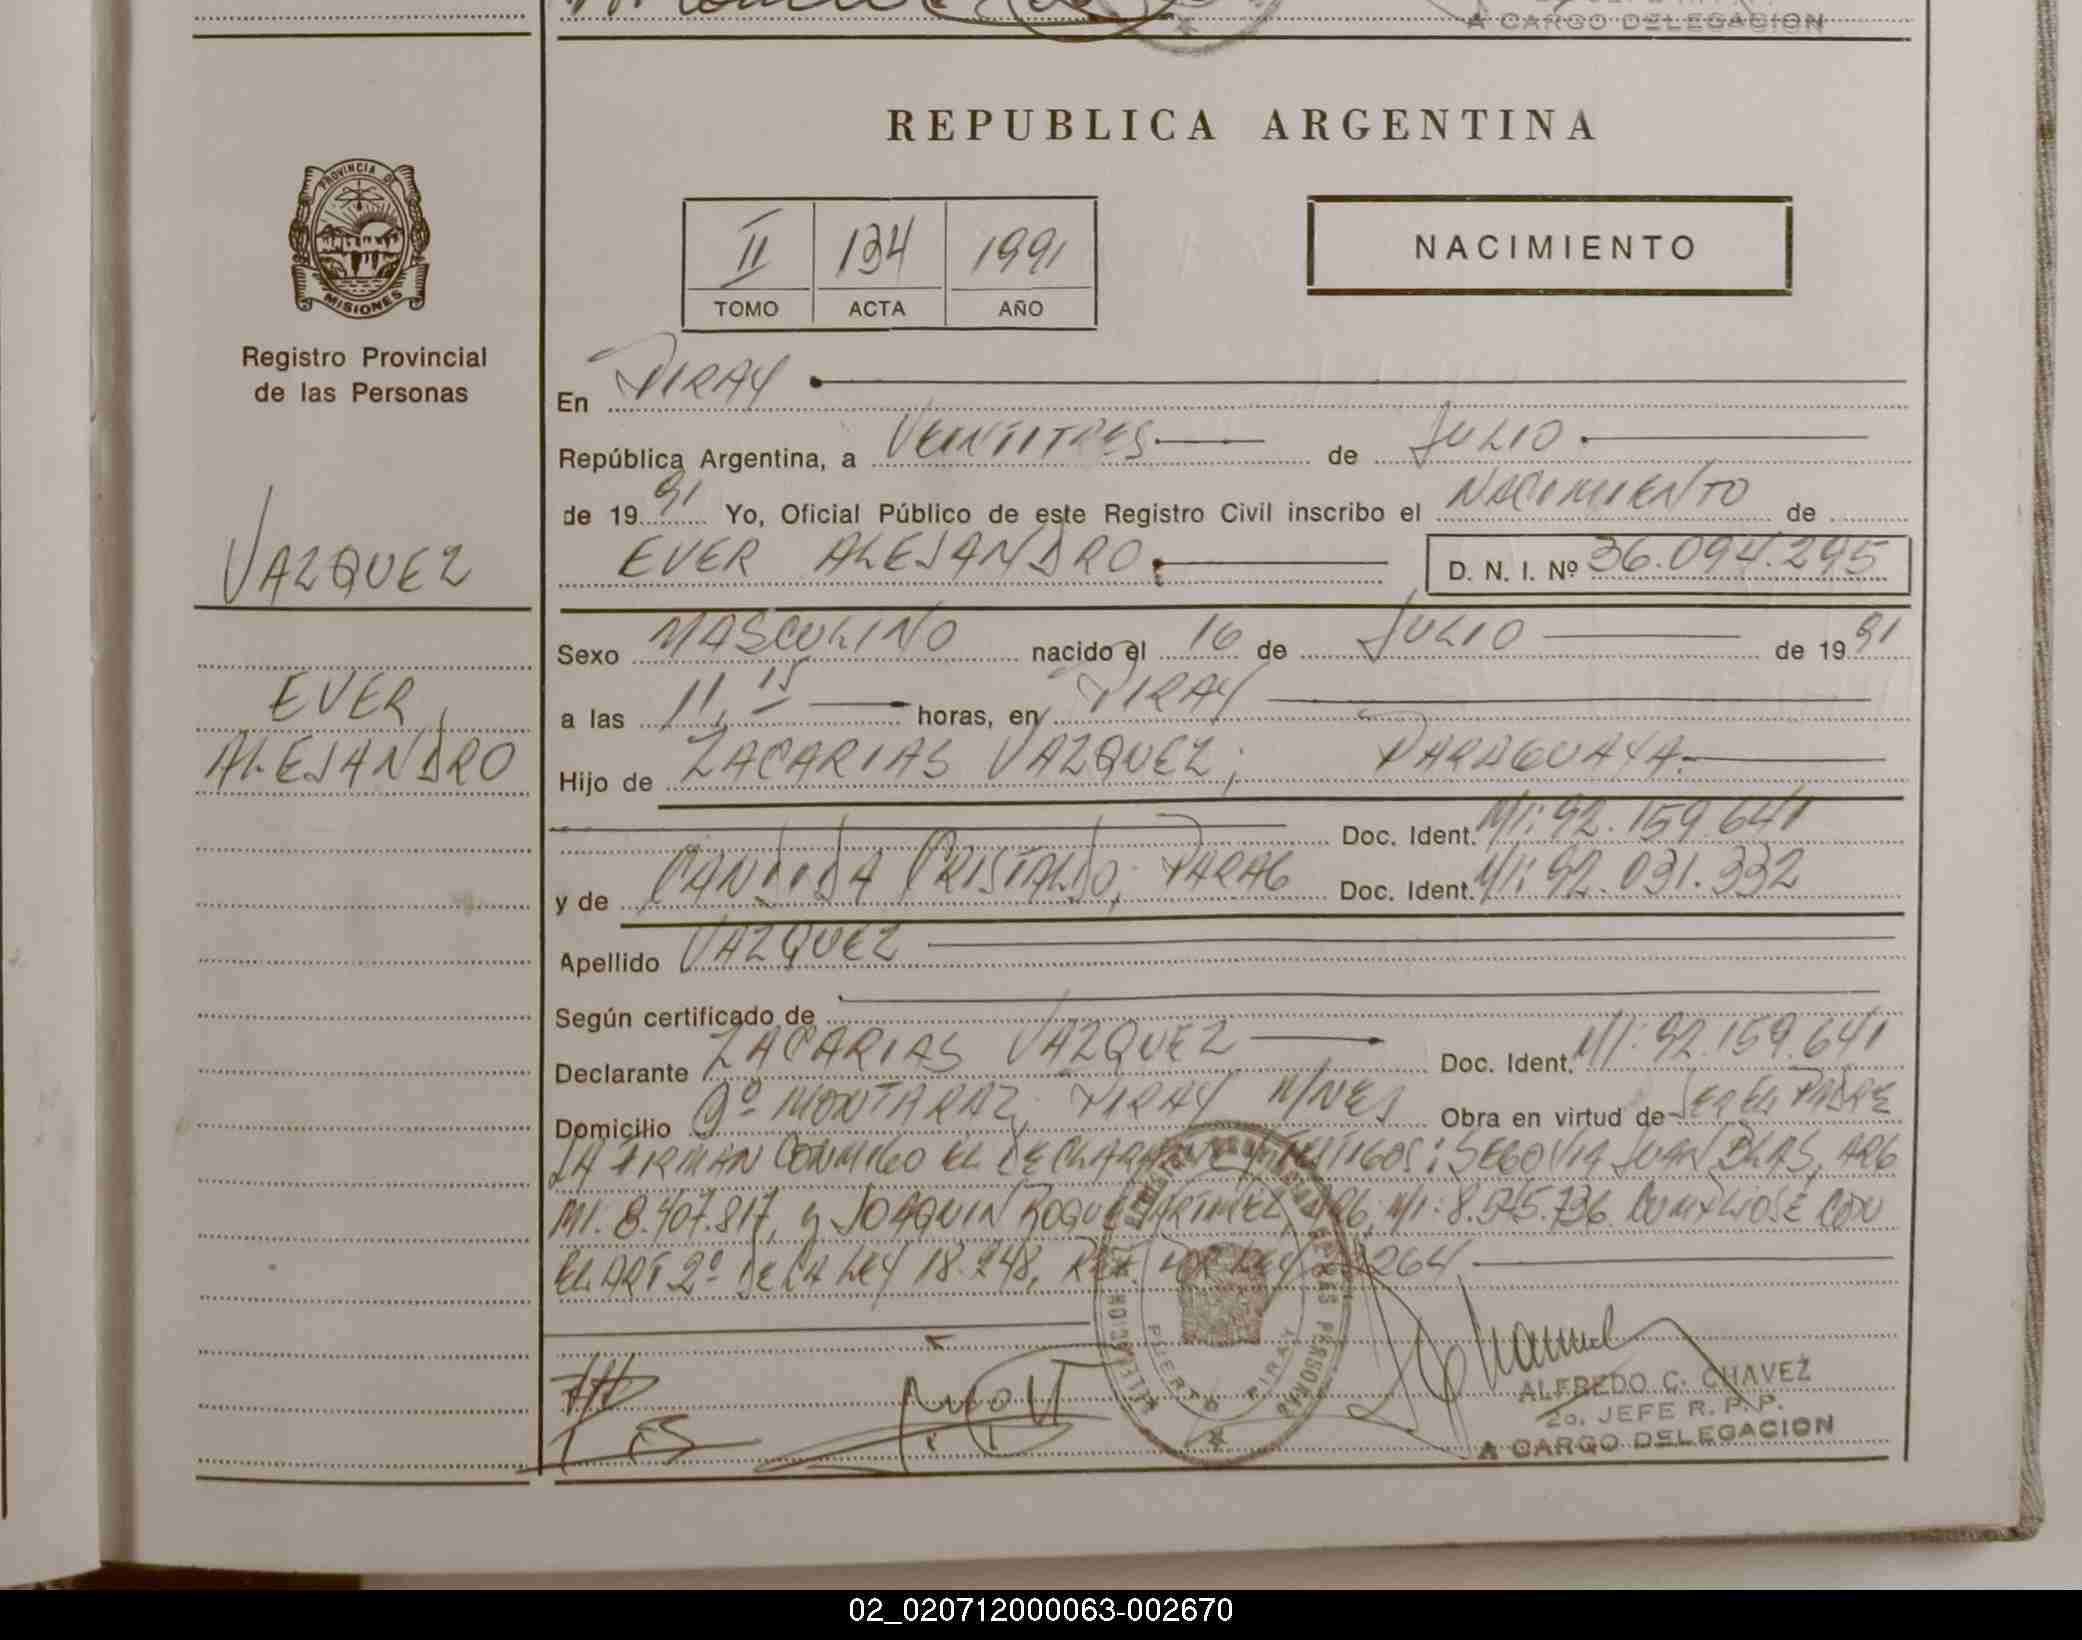 A CARGO DELEGACION
REPUBLICA ARGENTINA
PROVINCIA DE
MISIONES
Registro Provincial
de las Personas
II 134 1991
TOMO ACTA AÑO
NACIMIENTO
En PIRAY
República Argentina, a VEINTITRES de JULIO
de 1991 Yo, Oficial Público de este Registro Civil inscribo el NACIMIENTO de
EVER ALEJANDRO D. N. I. Nº 36.094.295
VAZQUEZ
EVER
ALEJANDRO
Sexo MASCULINO nacido el 16 de JULIO de 1991
a las 11,15 horas, en PIRAY
Hijo de ZACARIAS VAZQUEZ; PARAGUAYA.
Doc. Ident. M/I: 92.159.641
y de CANDIDA CRISTALDO; PARAG Doc. Ident. M/I: 92.031.332
Apellido VAZQUEZ
Según certificado de
Declarante ZACARIAS VAZQUEZ Doc. Ident. M/I: 92.159.641
Domicilio Bº MONTARAZ, PIRAY M/NES Obra en virtud de SER EL PADRE
LA FIRMAN CONMIGO EL DECLARANTE Y TESTIGOS: SEGOVIA JUAN BLAS, ARG
MI. 8.407.817, y JOAQUIN ROQUE ARG, M/I: 8.545.736. CUMPLIOSE CON
EL ART 2º DE LA LEY 18.248, POR LEY 264
PUERTO PIRAY
ALFREDO C. CHAVEZ
2o. JEFE R. P. P.
A CARGO DELEGACION
02_020712000063-002670